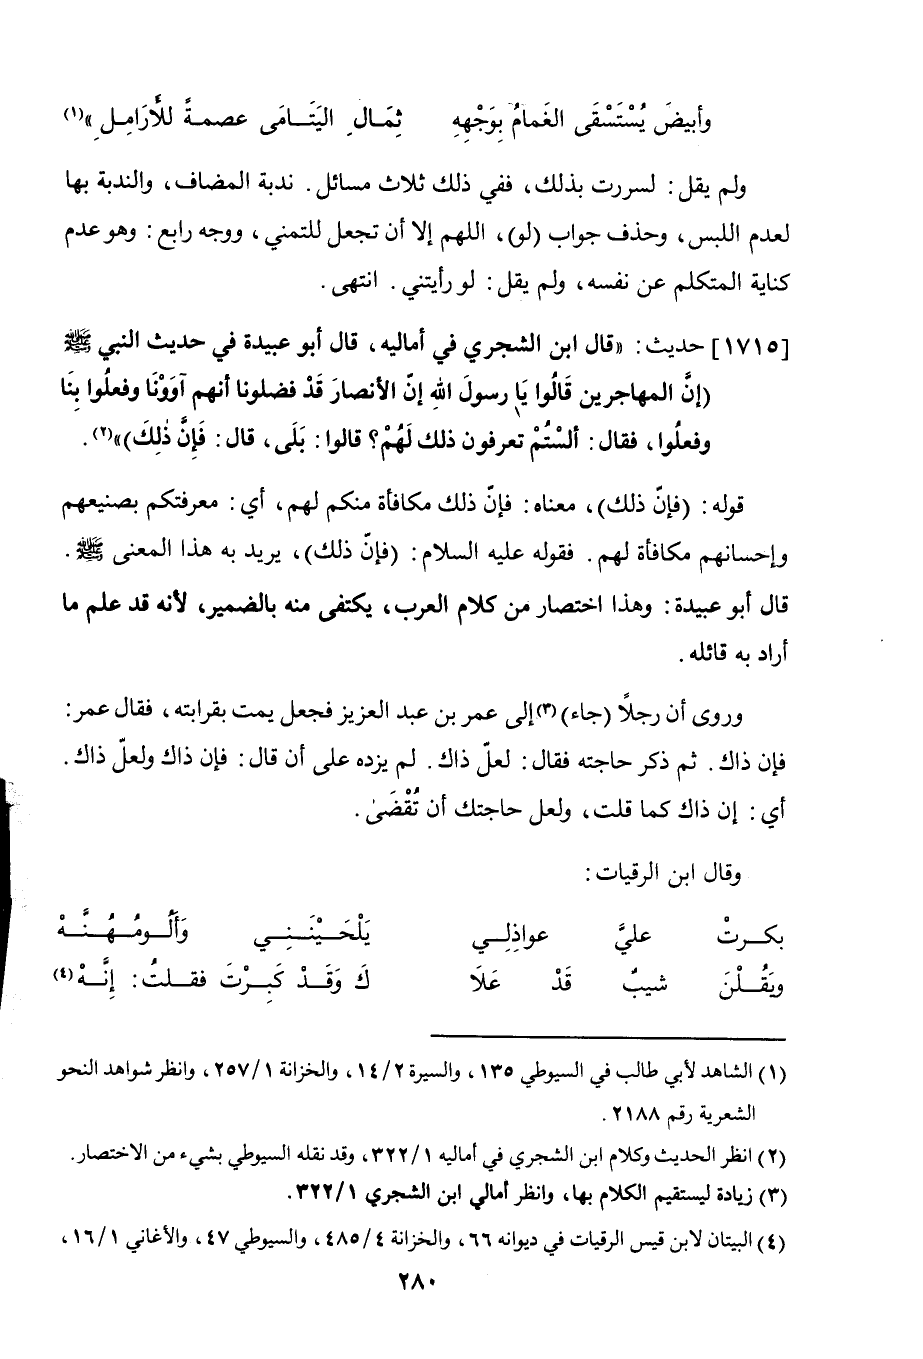 وأبيضَ يُسْتَسْقَى الغَمامُ بِوَجْهِهِ ثِمَالِ اليَتَامَى عصمةً للأَرَامِلِ»(١)
ولم يقل: لسررت بذلك، ففي ذلك ثلاث مسائل. ندبة المضاف، والندبة بها
لعدم اللبس، وحذف جواب (لو)، اللهم إلا أن تجعل للتمني، ووجه رابع: وهو عدم
كناية المتكلم عن نفسه، ولم يقل: لو رأيتني. انتهى.
[١٧١٥] حديث: «قال ابن الشجري في أماليه، قال أبو عبيدة في حديث النبي ﷺ
(إنَّ المهاجرين قَالُوا يَا رسولَ اللهِ إنّ الأنصارَ قَدْ فضلونا أنهم آوَوْنَا وفعلُوا بِنَا
وفعلُوا، فقال: ألسْتُمْ تعرفون ذلك لَهُمْ؟ قالوا: بَلَى، قال: فَإِنَّ ذٰلِكَ)»(٢).
قوله: (فإنّ ذلك)، معناه: فإنّ ذلك مكافأة منكم لهم، أي: معرفتكم بصنيعهم
وإحسانهم مكافأة لهم. فقوله عليه السلام: (فإنّ ذلك)، يريد به هذا المعنى ﷺ.
قال أبو عبيدة: وهذا اختصار من كلام العرب، يكتفى منه بالضمير، لأنه قد علم ما
أراد به قائله.
وروى أن رجلاً (جاء)(٣) إلى عمر بن عبد العزيز فجعل يمت بقرابته، فقال عمر:
فإن ذاك. ثم ذكر حاجته فقال: لعلّ ذاك. لم يزده على أن قال: فإن ذاك ولعلّ ذاك.
أي: إن ذاك كما قلت، ولعل حاجتك أن تُقْضَىٰ.
وقال ابن الرقيات:
بكرتْ عليَّ عواذِلِي يَلْحَيْنَنِي وَأَلُومُهُنَّهْ
ويَقُلْنَ شيبٌ قَدْ عَلَا كَ وَقَدْ كَبِرْتَ فقلتُ: إِنَّهْ(٤)
(١) الشاهد لأبي طالب في السيوطي ١٣٥، والسيرة ١٤/٢، والخزانة ٢٥٧/١، وانظر شواهد النحو
الشعرية رقم ٢١٨٨.
(٢) انظر الحديث وكلام ابن الشجري في أماليه ٣٢٢/١، وقد نقله السيوطي بشيء من الاختصار.
(٣) زيادة ليستقيم الكلام بها، وانظر أمالي ابن الشجري ٣٢٢/١.
(٤) البيتان لابن قيس الرقيات في ديوانه ٦٦، والخزانة ٤٨٥/٤، والسيوطي ٤٧، والأغاني ١٦/١،
٢٨٠